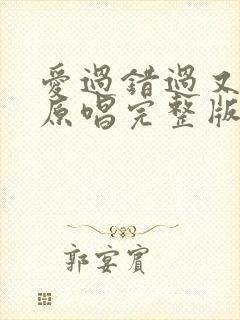 愛過錯過又
原唱完整版
郭宴賓